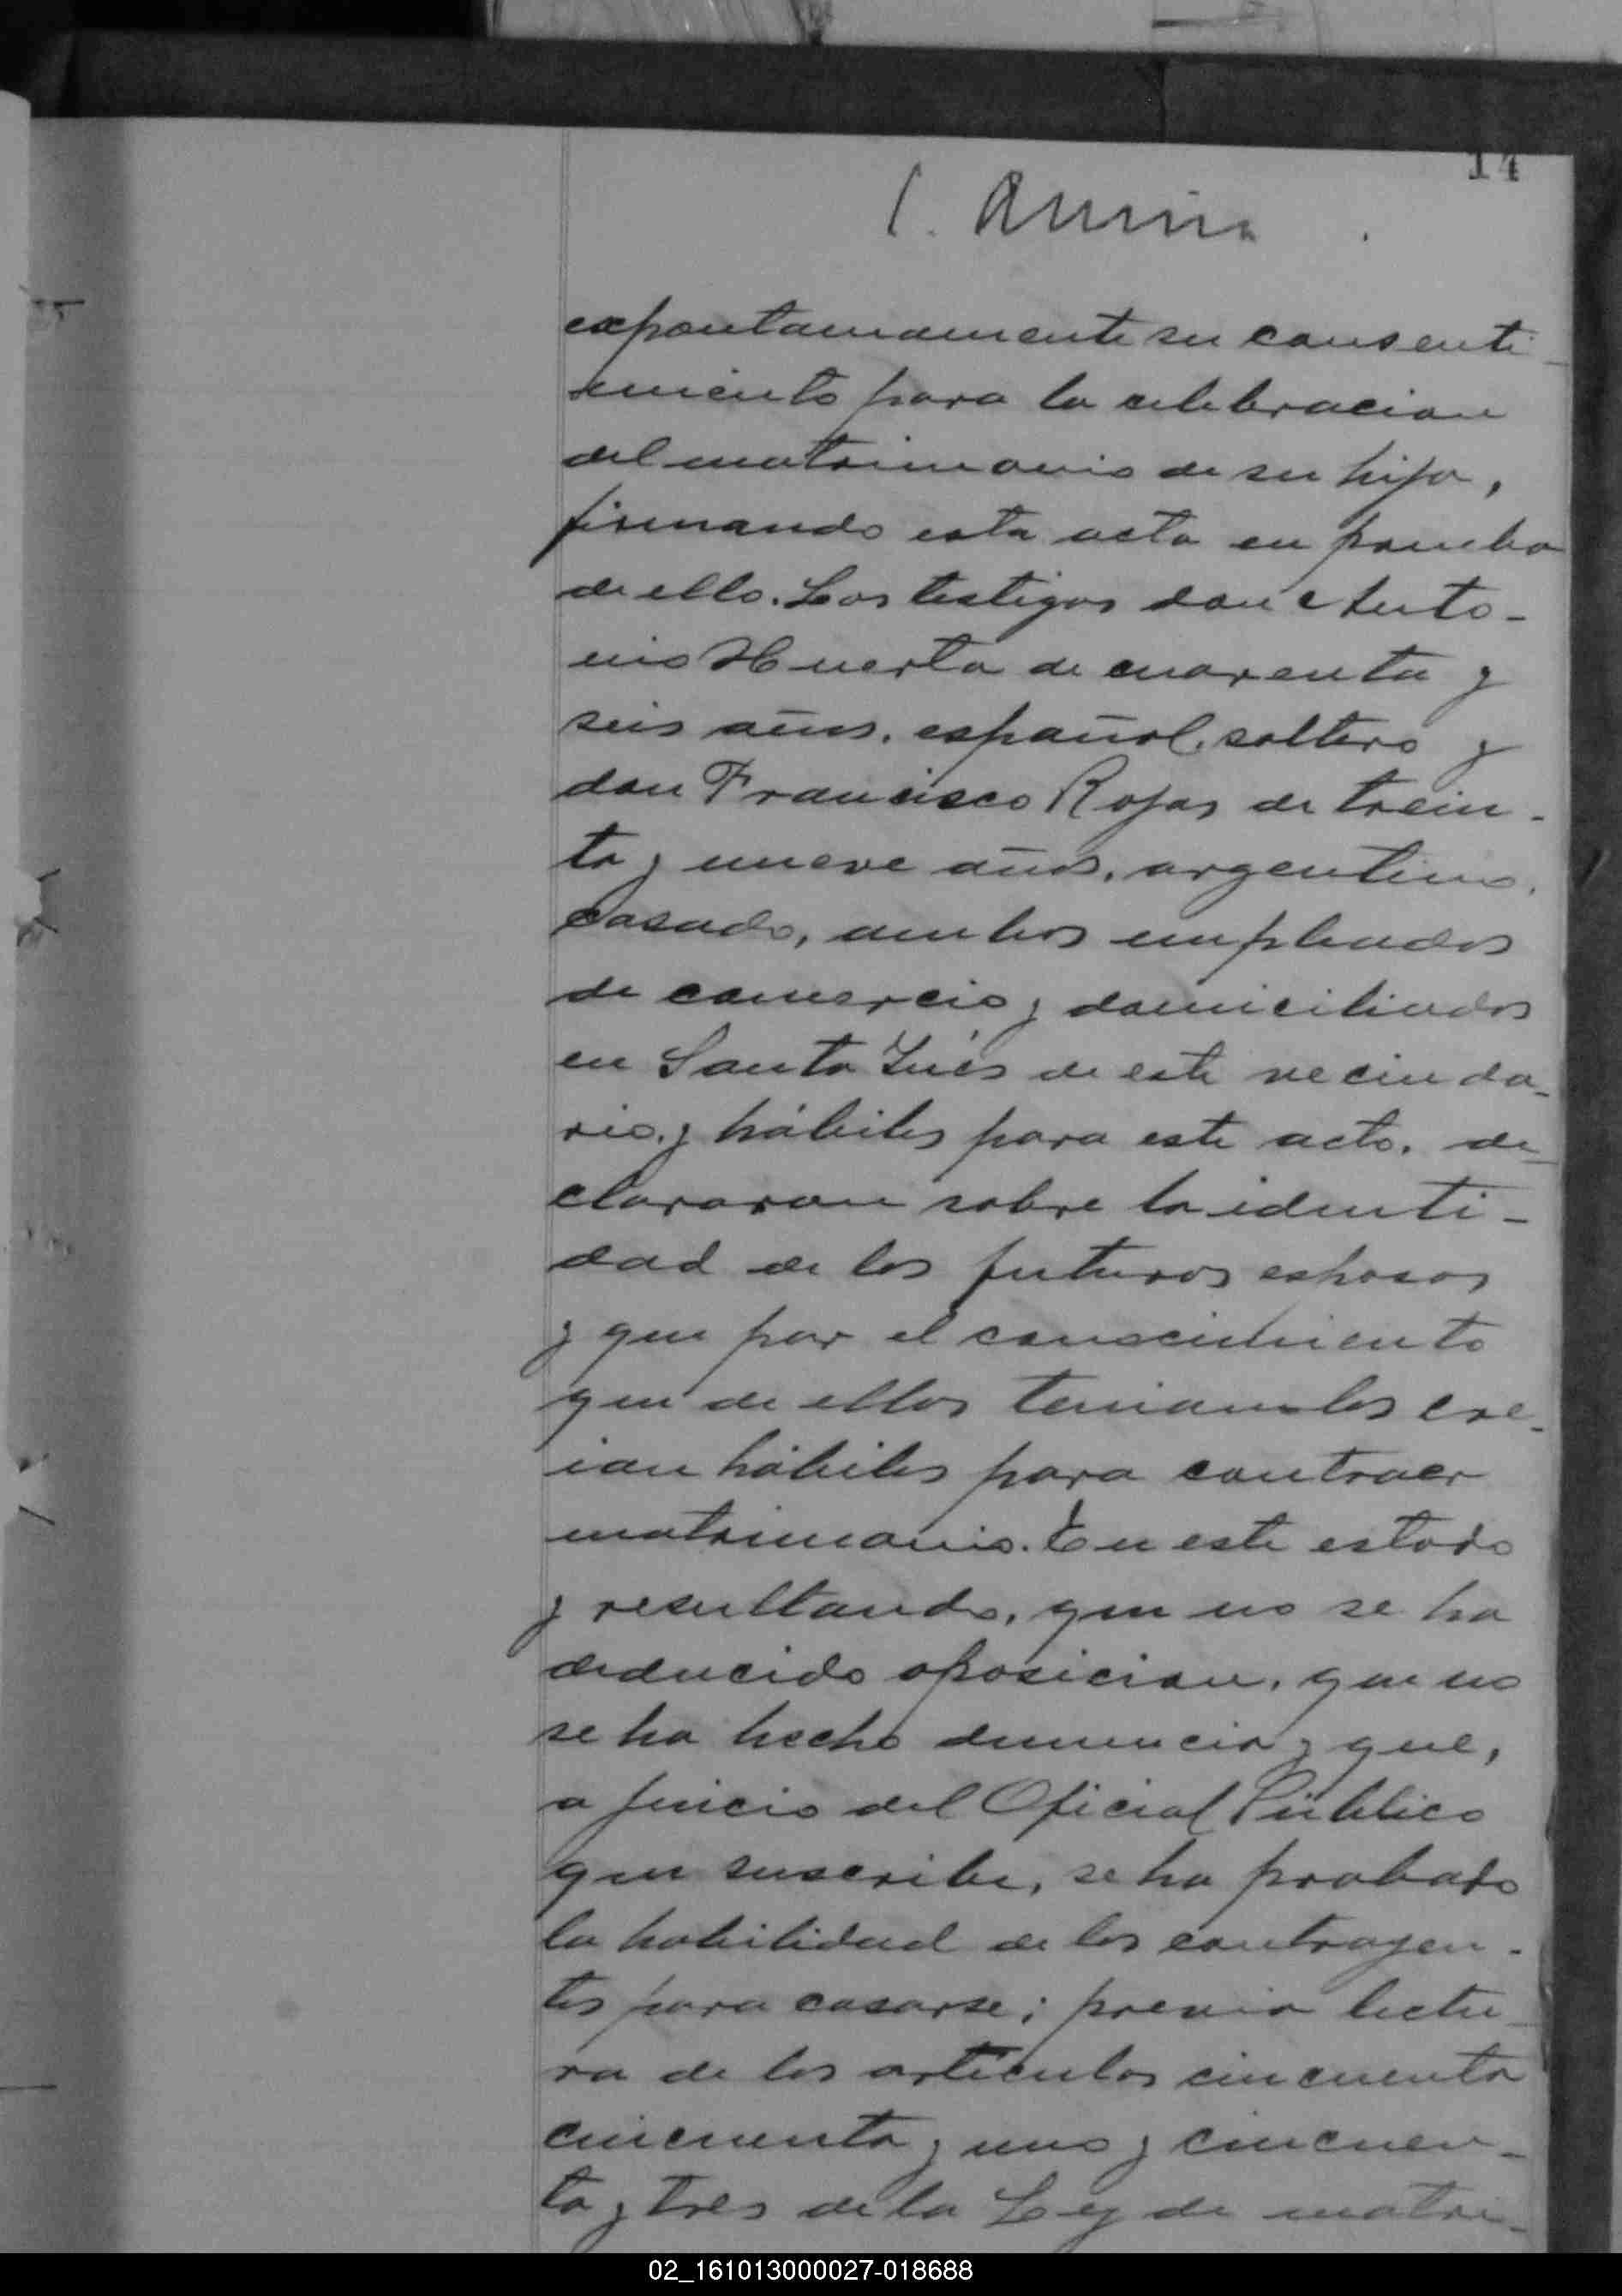 14
expontamamente su consenti-
miento para la celebracion
del matrimonio de su hija,
firmando esta acta en prueba
de ello. Los testigos don Anto-
nio Huerta de cuarenta y
seis años, español, soltero y
don Francisco Rojas de trein-
ta y nueve años, argentino,
casado, ambos empleados
de comercio y domiciliados
en Santa Inés de este vecinda-
rio, y hábiles para este acto, de-
clararon sobre la identi-
dad de los futuros esposos
y que por el conocimiento
que de ellos tenian los cre-
ian hábiles para contraer
matrimonio. En este estado
y resultando, que no se ha
deducido oposicion, que no
se ha hecho denuncia y que,
a juicio del Oficial Público
que suscribe, se ha probado
la habilidad de los contrayen-
tes para casarse; previa lectu-
ra de los artículos cincuenta
cincuenta y uno y cincuen-
ta y tres de la Ley de matri-
02_161013000027-018688